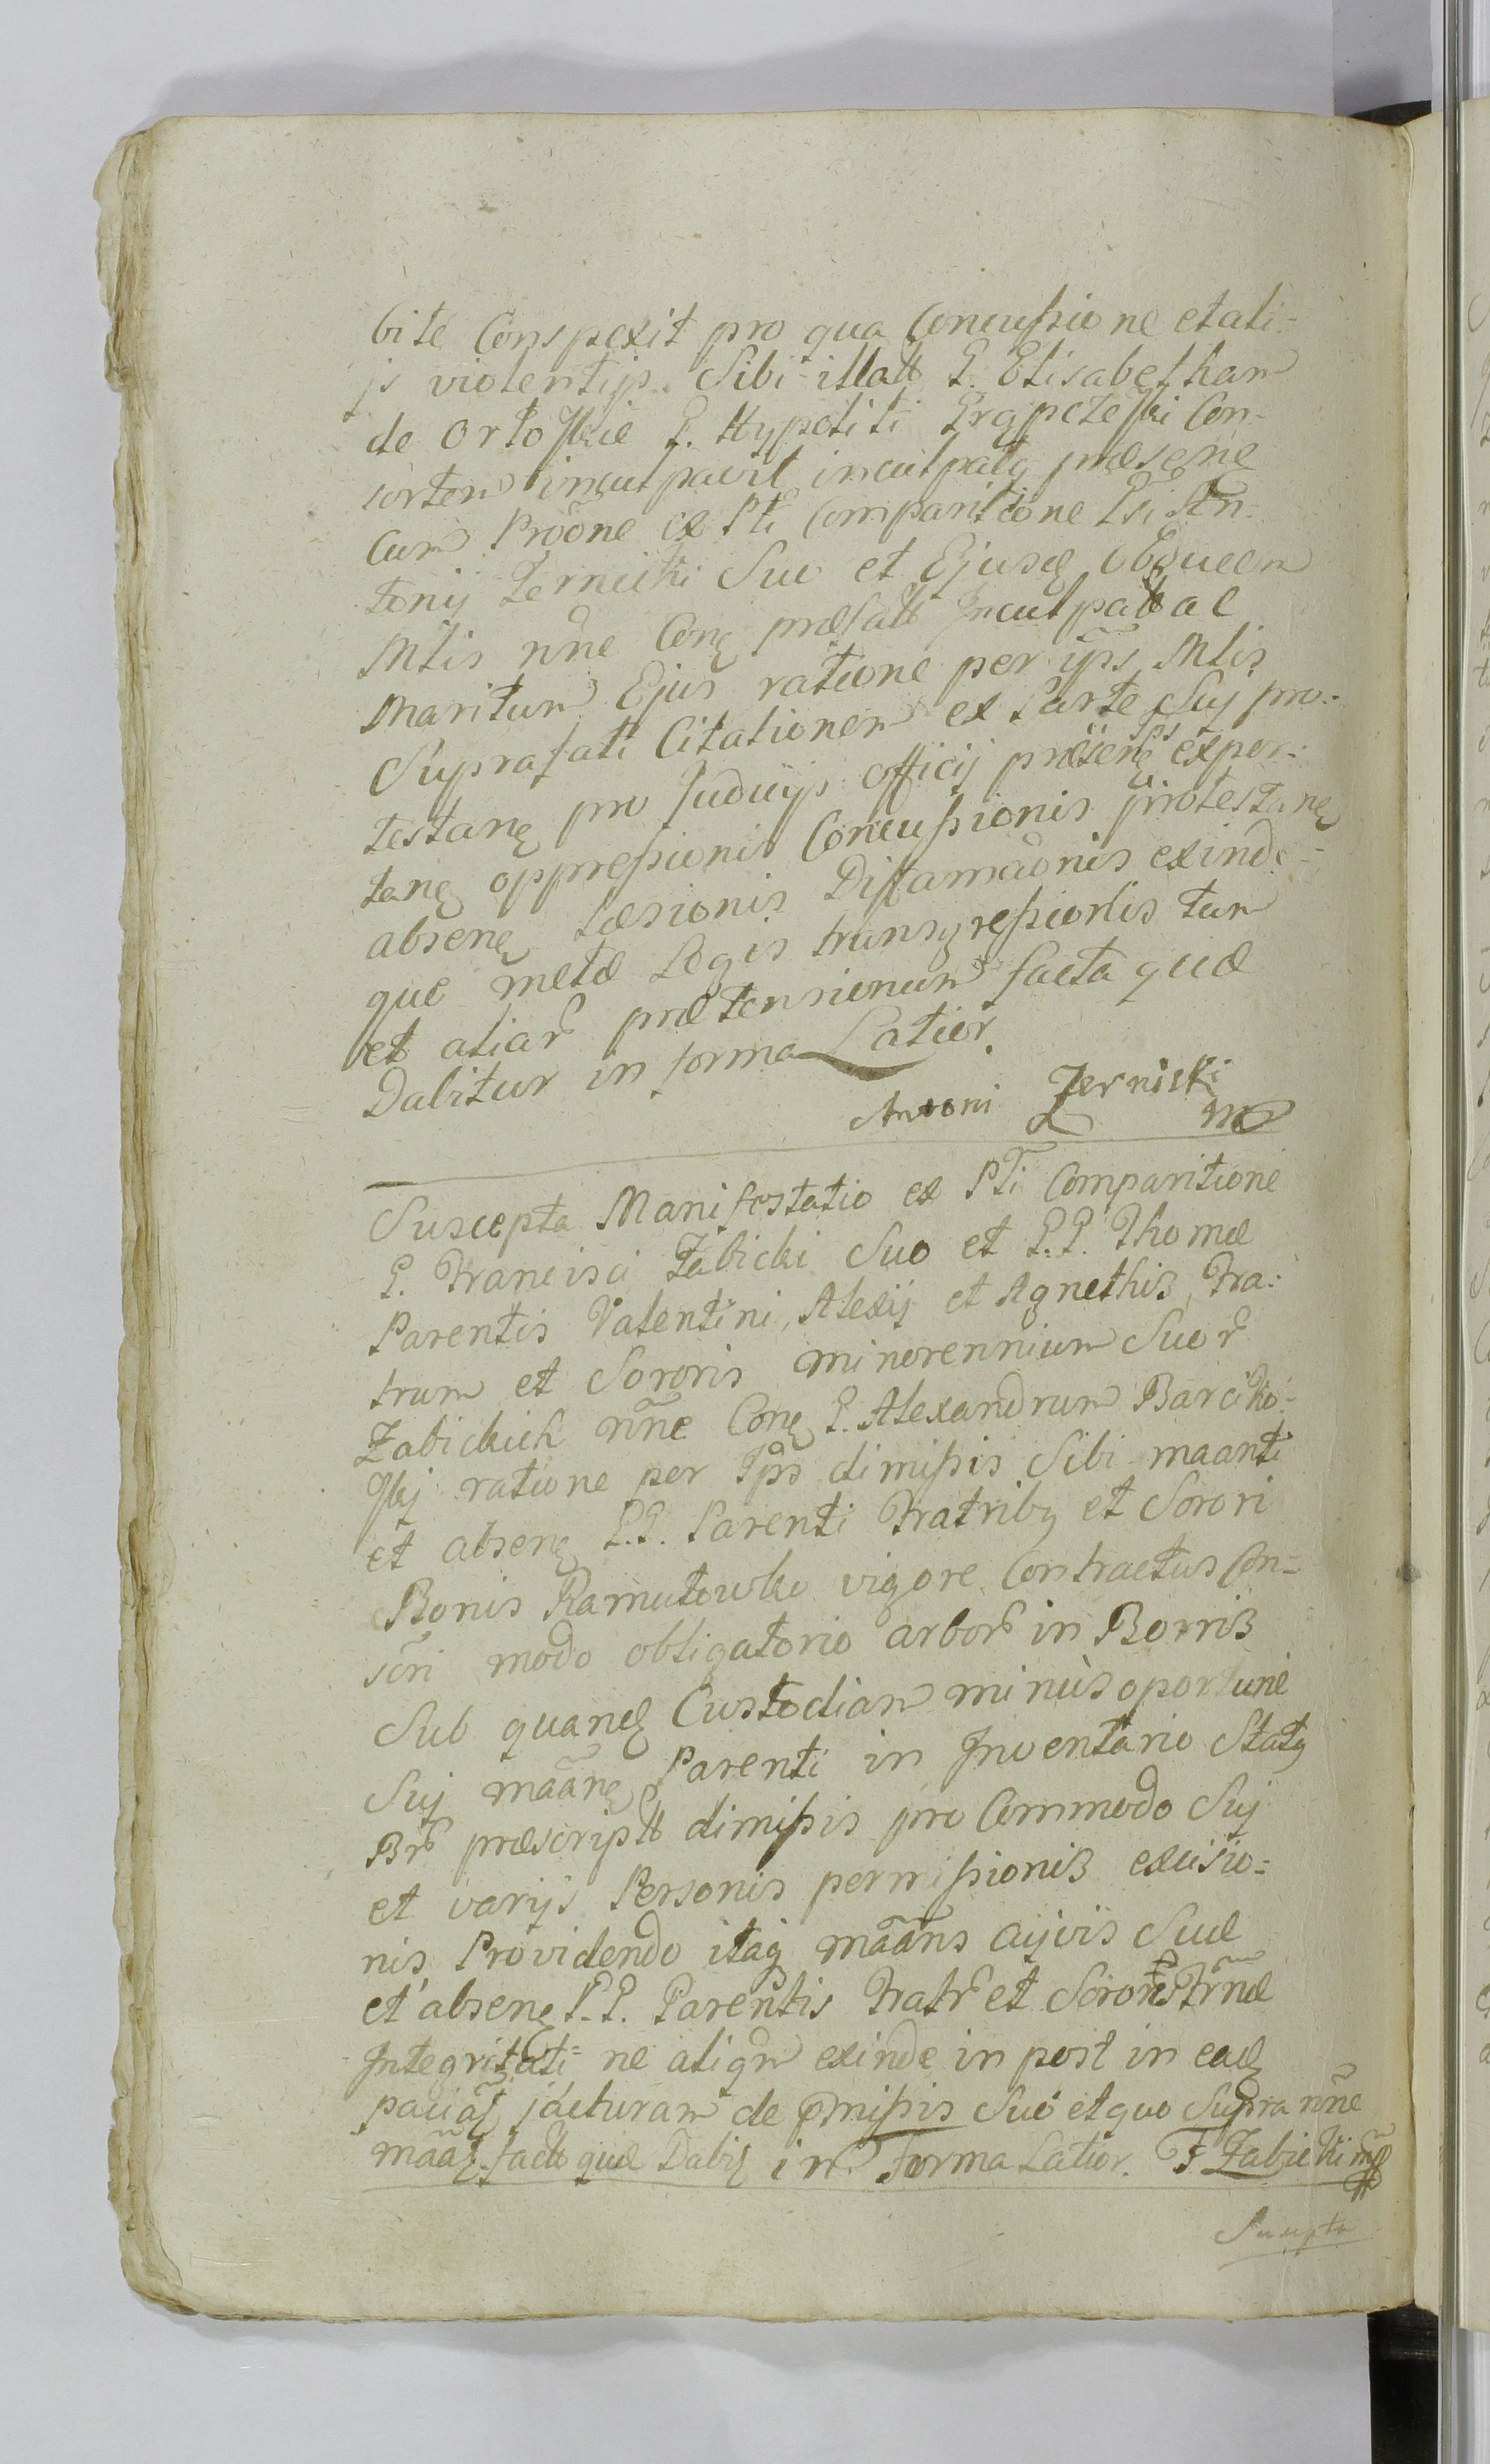 bite Conspexit pro qua Concussione et ali-
js violentijs Sibi illatt G. Elisabetham
de Orło skie G. Hypoliti Con-
sortem inculpavit inculpatq praesene
Cum Proone ex Pti Comparitione Gsi An-
tonij Zernicki Suo et Ejusd
Mlis nne Conq praefatt Inculpatt ac
Maritum Ejus ratione per ips Mlis
Suprafati Citationem ex Parte Suj pro-
testanq pro Juducijs officij praesenq expor-
tanq oppressionis Concussionis protestanq
absenq Laesionis Diffamaonis exinde-
que metae Legis transgressionis tum
et aliar praetensionum facta quae
Dabitur in forma Latior.
Antoni Zerniski
mp
Suscepta Manifestatio ex Pti Comparitione
G. Francisci Zabicki Suo et G.G. Thomae
Parentis Valentini, Alexij et Agnethis, Fra-
trum et Sororis minorennium Suor
Zabickich nne Conq G. Alexandrum Barciko-
skj ratione per Ips dimissis Sibi maanti
et absenq G.G. Parenti Fratribq et Sorori
Bonis Ramutowko vigore Contractus Con-
scri modo obligatorio arbor in Borris
Sub quanq Custodiam minus oportune
Suj maanq Parenti in Inventario Statq
Br praescriptt dimissis pro Commodo Suj
et varijs Personis permissionis excisio-
nis Providendo itaq maans cujvis Suae
et absenq G.G. Parentis Fratr et Sororis Frnae
Integritati- ne aliqm exinde in post in eadq
jacturam de pmissis Suo et quo Supra nne
maaq fact quae Dabiq in Forma Latior. F Zabicki mp
Suscepta